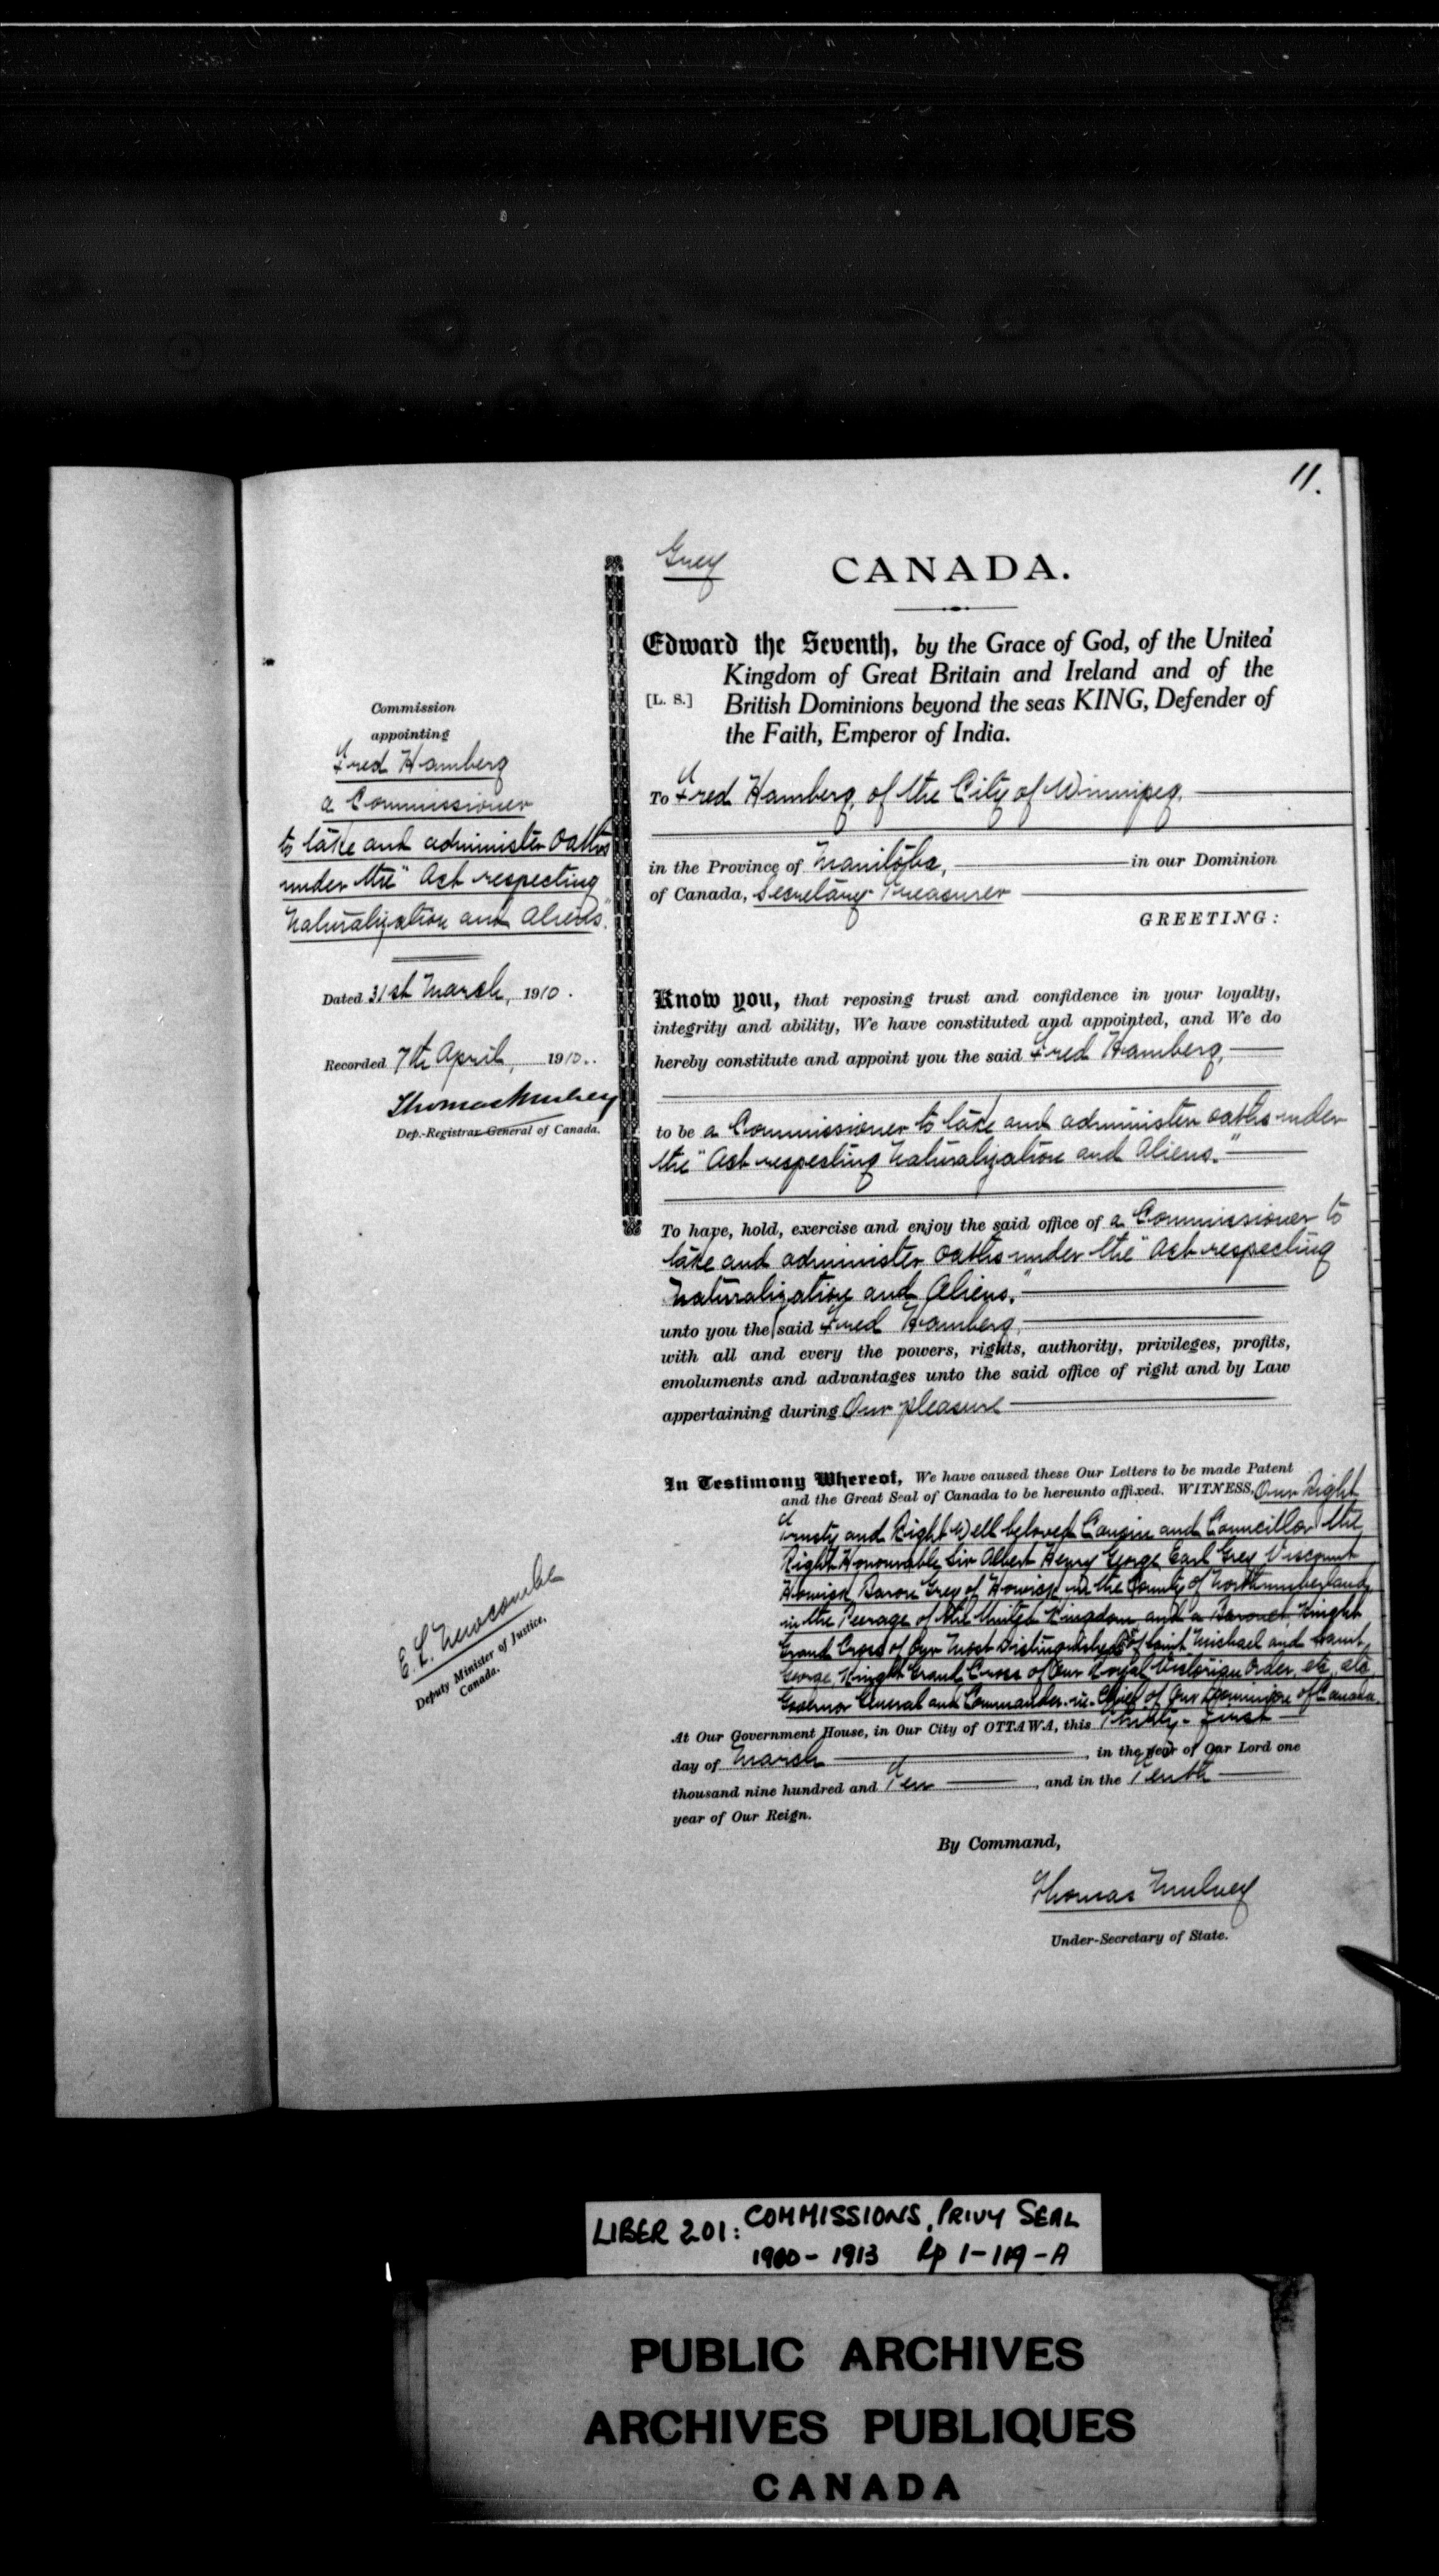 11.
Grey
CANADA.
Edward the Seventh, by the Grace of God, of the United
Kingdom of Great Britain and Ireland and of the
[L. S.] British Dominions beyond the seas KING, Defender of
the Faith, Emperor of India.
Commission
appointing
Fred Hamberg
a Commissioner
to take and administer Oaths
under the "Act respecting
Naturalization and Aliens."
Dated 31st March, 1910.
Recorded 7th April, 1910.
Thomas Mulvey
Dep.-Registrar General of Canada.
To Fred Hamberg, of the City of Winnipeg,
in the Province of Manitoba, in our Dominion
of Canada, Secretary Treasurer
GREETING:
Know you, that reposing trust and confidence in your loyalty,
integrity and ability, We have constituted and appointed, and We do
hereby constitute and appoint you the said Fred Hamberg,
to be a Commissioner to take and administer oaths under
the "Act respecting Naturalization and Aliens."
To have, hold, exercise and enjoy the said office of a Commissioner to
take and administer oaths under the "Act respecting
Naturalization and Aliens."
unto you the said Fred Hamberg,
with all and every the powers, rights, authority, privileges, profits,
emoluments and advantages unto the said office of right and by Law
appertaining during Our pleasure
In Testimony Whereof, We have caused these Our Letters to be made Patent
and the Great Seal of Canada to be hereunto affixed. WITNESS, Our Right
Trusty and Right Well beloved Cousin and Councillor the
Right Honourable Sir Albert Henry George, Earl Grey Viscount
Howick, Baron Grey of Howick, in the County of Northumberland,
in the Peerage of the United Kingdom and a Baronet, Knight
Grand Cross of Our Most Distinguished of Saint Michael and Saint
George, Knight Grand Cross of Our Royal Victorian Order, etc., etc.,
Governor General and Commander-in-Chief of Our Dominion of Canada.
At Our Government House, in Our City of OTTAWA, this Thirty-first
day of March, in the year of Our Lord one
thousand nine hundred and Ten, and in the Tenth
year of Our Reign.
By Command,
Thomas Mulvey
Under-Secretary of State.
E. L. Newcombe
Deputy Minister of Justice,
Canada.
LIBER 201: COMMISSIONS, PRIVY SEAL
1910 - 1913 Pp 1-119-A
PUBLIC ARCHIVES
ARCHIVES PUBLIQUES
CANADA